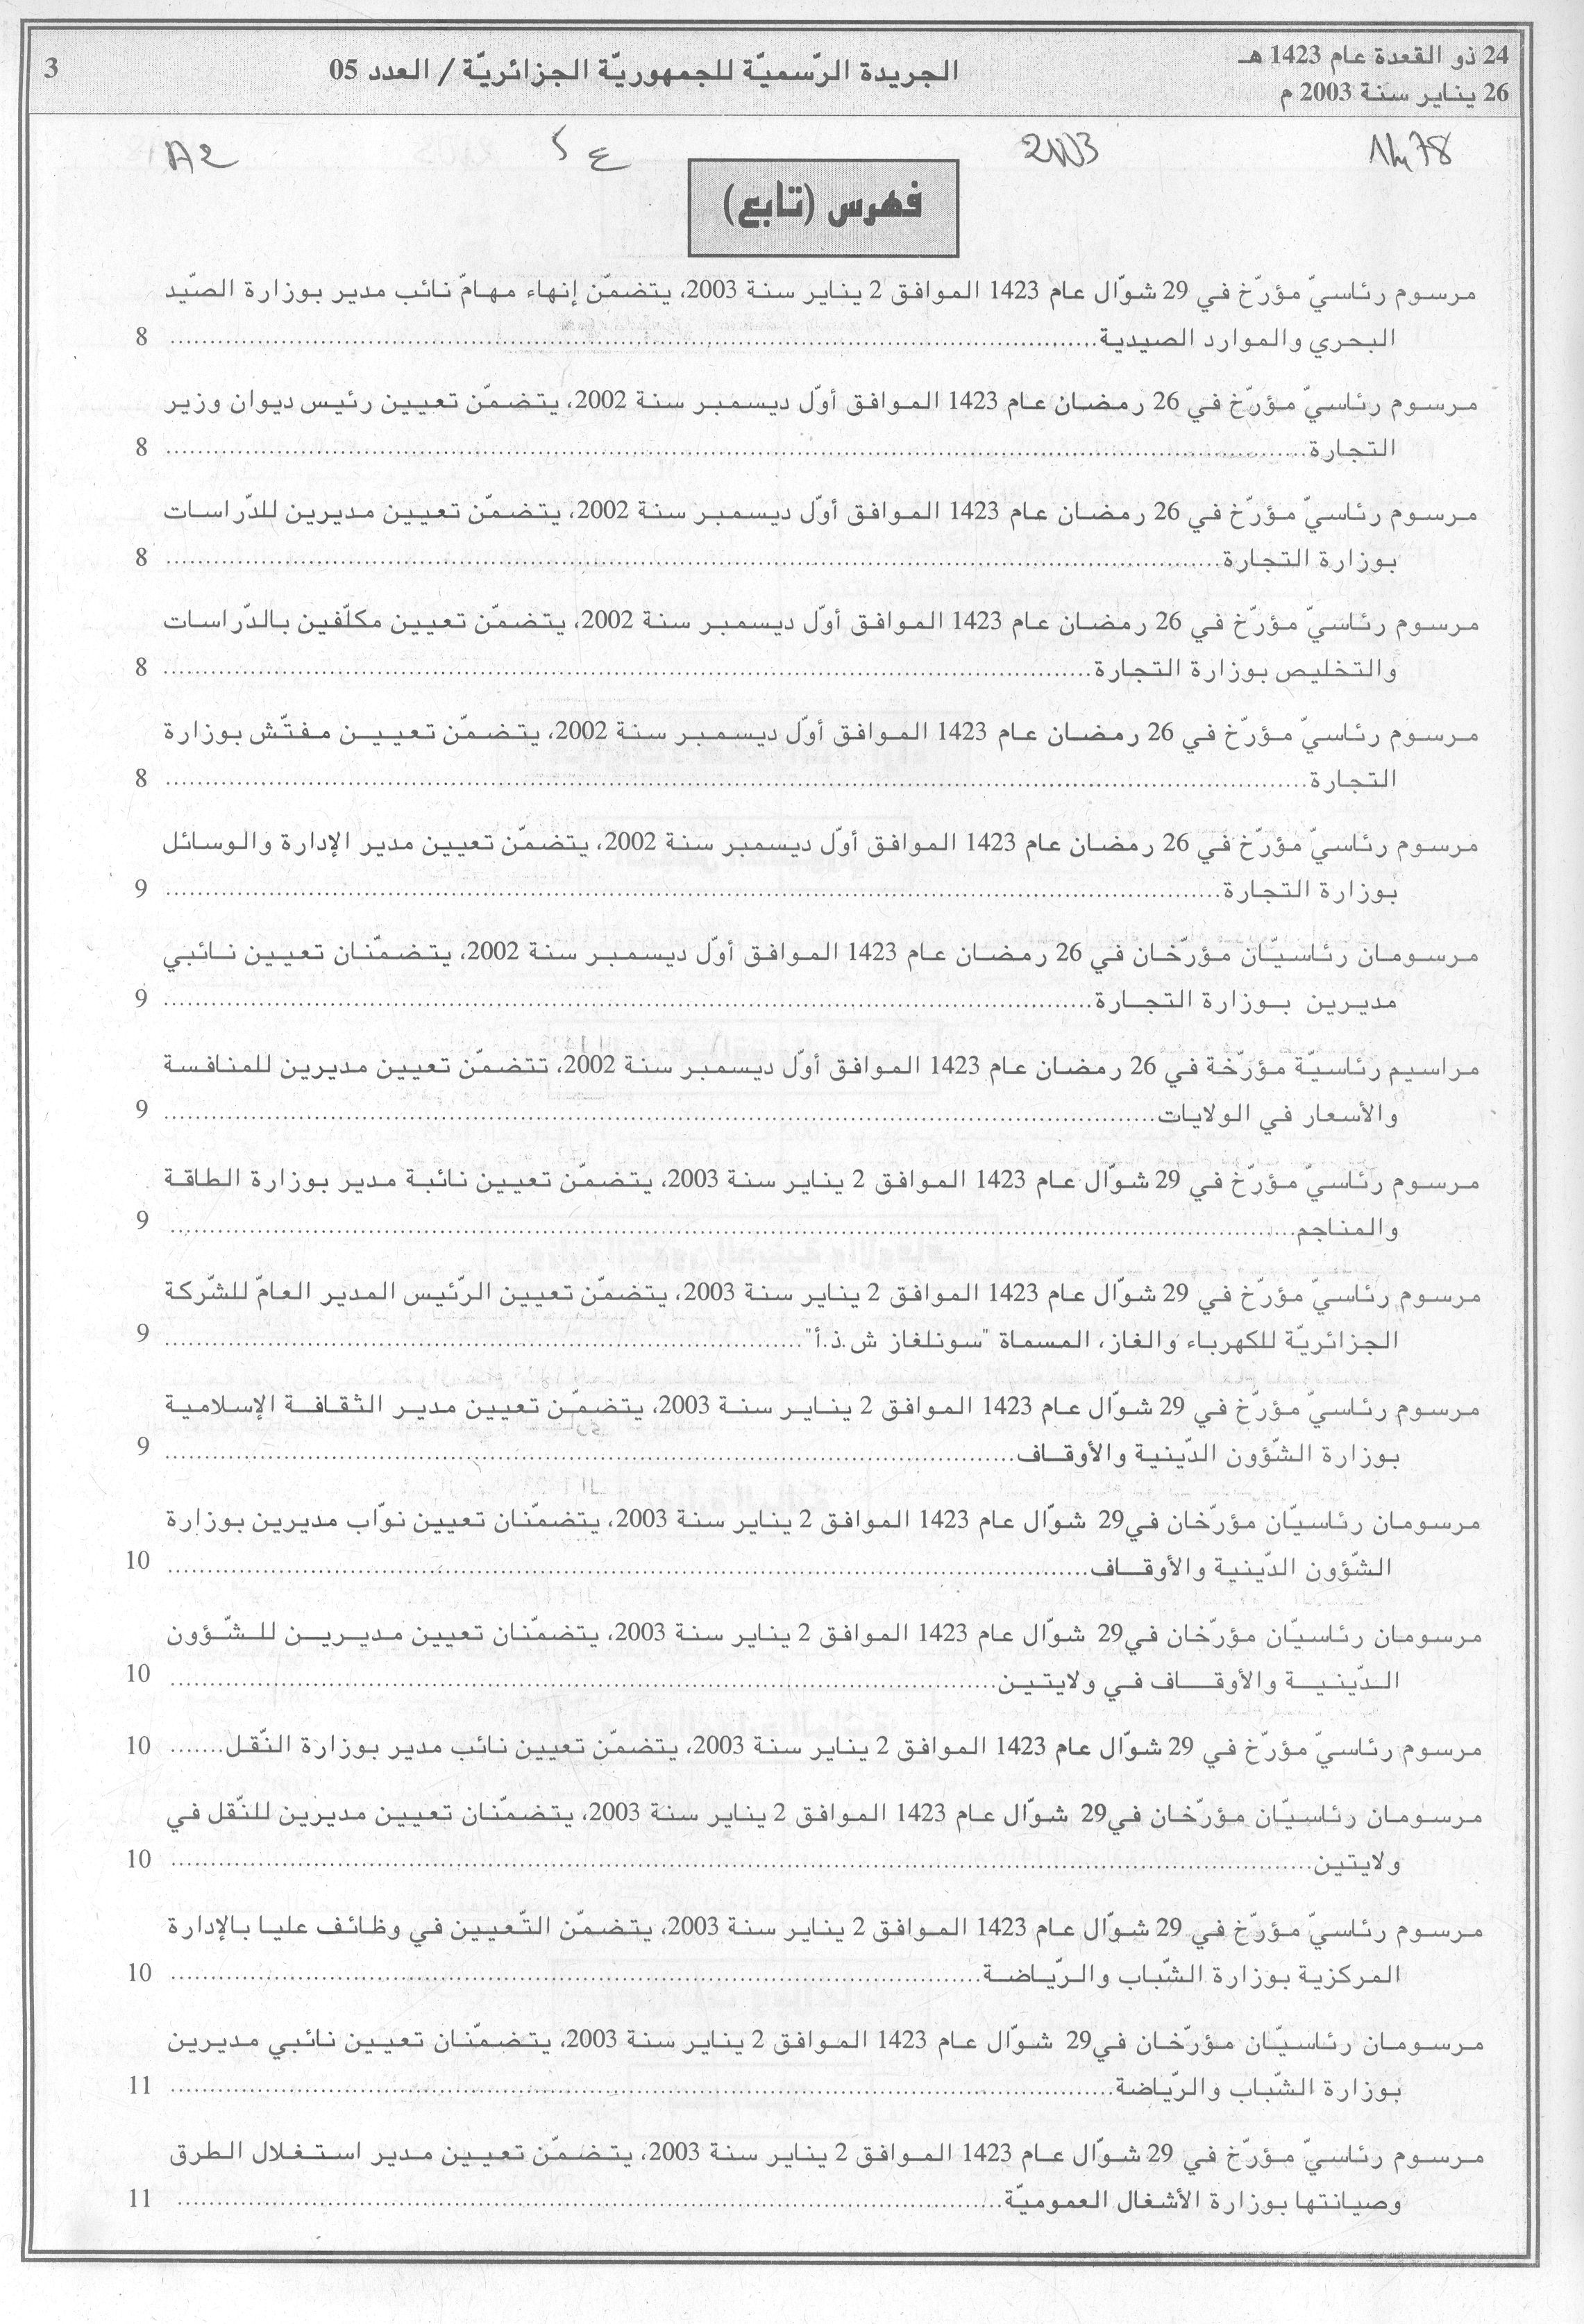 24 ذو القعدة عام 1423 هـ
26 يناير سنة 2003 م
الجريدة الرّسميّة للجمهوريّة الجزائريّة / العدد 05
3
2003
ع 5
A2
فهرس (تابع)
مرسوم رئاسيّ مؤرّخ في 29 شوّال عام 1423 الموافق 2 يناير سنة 2003، يتضمّن إنهاء مهامّ نائب مدير بوزارة الصيّد
البحري والموارد الصيدية........ 8
مرسوم رئاسيّ مؤرّخ في 26 رمضان عام 1423 الموافق أوّل ديسمبر سنة 2002، يتضمّن تعيين رئيس ديوان وزير
التجارة........ 8
مرسوم رئاسيّ مؤرّخ في 26 رمضان عام 1423 الموافق أوّل ديسمبر سنة 2002، يتضمّن تعيين مديرين للدّراسات
بوزارة التجارة........ 8
مرسوم رئاسيّ مؤرّخ في 26 رمضان عام 1423 الموافق أوّل ديسمبر سنة 2002، يتضمّن تعيين مكلّفين بالدّراسات
والتخليص بوزارة التجارة........ 8
مرسوم رئاسيّ مؤرّخ في 26 رمضان عام 1423 الموافق أوّل ديسمبر سنة 2002، يتضمّن تعيين مفتّش بوزارة
التجارة........ 8
مرسوم رئاسيّ مؤرّخ في 26 رمضان عام 1423 الموافق أوّل ديسمبر سنة 2002، يتضمّن تعيين مدير الإدارة والوسائل
بوزارة التجارة........ 9
مرسومان رئاسيّان مؤرّخان في 26 رمضان عام 1423 الموافق أوّل ديسمبر سنة 2002، يتضمّنان تعيين نائبي
مديرين بوزارة التجارة........ 9
مراسيم رئاسيّة مؤرّخة في 26 رمضان عام 1423 الموافق أوّل ديسمبر سنة 2002، تتضمّن تعيين مديرين للمنافسة
والأسعار في الولايات........ 9
مرسوم رئاسيّ مؤرّخ في 29 شوّال عام 1423 الموافق 2 يناير سنة 2003، يتضمّن تعيين نائبة مدير بوزارة الطاقة
والمناجم........ 9
مرسوم رئاسيّ مؤرّخ في 29 شوّال عام 1423 الموافق 2 يناير سنة 2003، يتضمّن تعيين الرّئيس المدير العامّ للشّركة
الجزائريّة للكهرباء والغاز، المسماة "سونلغاز ش.ذ.أ"........ 9
مرسوم رئاسيّ مؤرّخ في 29 شوّال عام 1423 الموافق 2 يناير سنة 2003، يتضمّن تعيين مدير الثقافة الإسلامية
بوزارة الشّؤون الدّينية والأوقاف........ 9
مرسومان رئاسيّان مؤرّخان في29 شوّال عام 1423 الموافق 2 يناير سنة 2003، يتضمّنان تعيين نوّاب مديرين بوزارة
الشّؤون الدّينية والأوقاف........ 10
مرسومان رئاسيّان مؤرّخان في29 شوّال عام 1423 الموافق 2 يناير سنة 2003، يتضمّنان تعيين مديرين للشّؤون
الدّينية والأوقاف في ولايتين........ 10
مرسوم رئاسيّ مؤرّخ في 29 شوّال عام 1423 الموافق 2 يناير سنة 2003، يتضمّن تعيين نائب مدير بوزارة النّقل....... 10
مرسومان رئاسيّان مؤرّخان في29 شوّال عام 1423 الموافق 2 يناير سنة 2003، يتضمّنان تعيين مديرين للنّقل في
ولايتين........ 10
مرسوم رئاسيّ مؤرّخ في 29 شوّال عام 1423 الموافق 2 يناير سنة 2003، يتضمّن التّعيين في وظائف عليا بالإدارة
المركزية بوزارة الشّباب والرّياضة........ 10
مرسومان رئاسيّان مؤرّخان في29 شوّال عام 1423 الموافق 2 يناير سنة 2003، يتضمّنان تعيين نائبي مديرين
بوزارة الشّباب والرّياضة........ 11
مرسوم رئاسيّ مؤرّخ في 29 شوّال عام 1423 الموافق 2 يناير سنة 2003، يتضمّن تعيين مدير استغلال الطرق
وصيانتها بوزارة الأشغال العموميّة........ 11